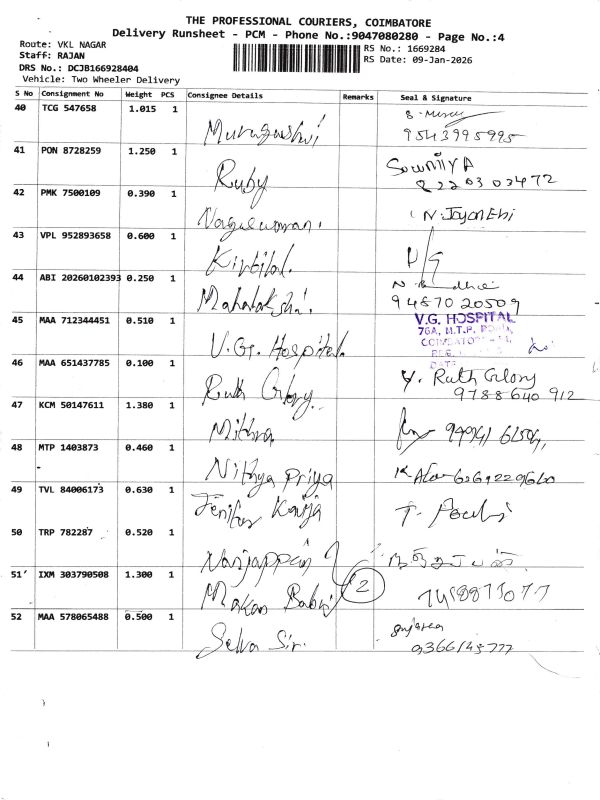 THE PROFESSIONAL COURIERS, COIMBATORE
Delivery Runsheet - PCM - Phone No.:9047080280 - Page No.:4
Route: VKL NAGAR
Staff: RAJAN
DRS No.: DCJB166928404
Vehicle: Two Wheeler Delivery
RS No.: 1669284
RS Date: 09-Jan-2026
S No Consignment No Weight PCS Consignee Details Remarks Seal & Signature
40 TCG 547658 1.015 1
Murugeshwi
9543995995
41 PON 8728259 1.250 1
Ruby Sowmiya
42 PMK 7500109 0.390 1
N. Jayanthi
43 VPL 952893658 0.600 1
Kirtilal.
44 ABI 20260102393 0.250 1
Mahalakshmi.
9487020509
45 MAA 712344451 0.510 1
V.G. Hospital. V.G. HOSPITAL
76A, M.T.P.
46 MAA 651437785 0.100 1
Ruth Glory. Y. Ruth Glory
9788640912
47 KCM 50147611 1.380 1
Mithra
48 MTP 1403873 0.460 1
Nithya Priya
49 TVL 84006173 0.630 1
Jenifer
50 TRP 782287 0.520 1
Nanjappan
51 IXM 303790508 1.300 1
Makan Babu 2
52 MAA 578065488 0.500 1
Selva Sir.